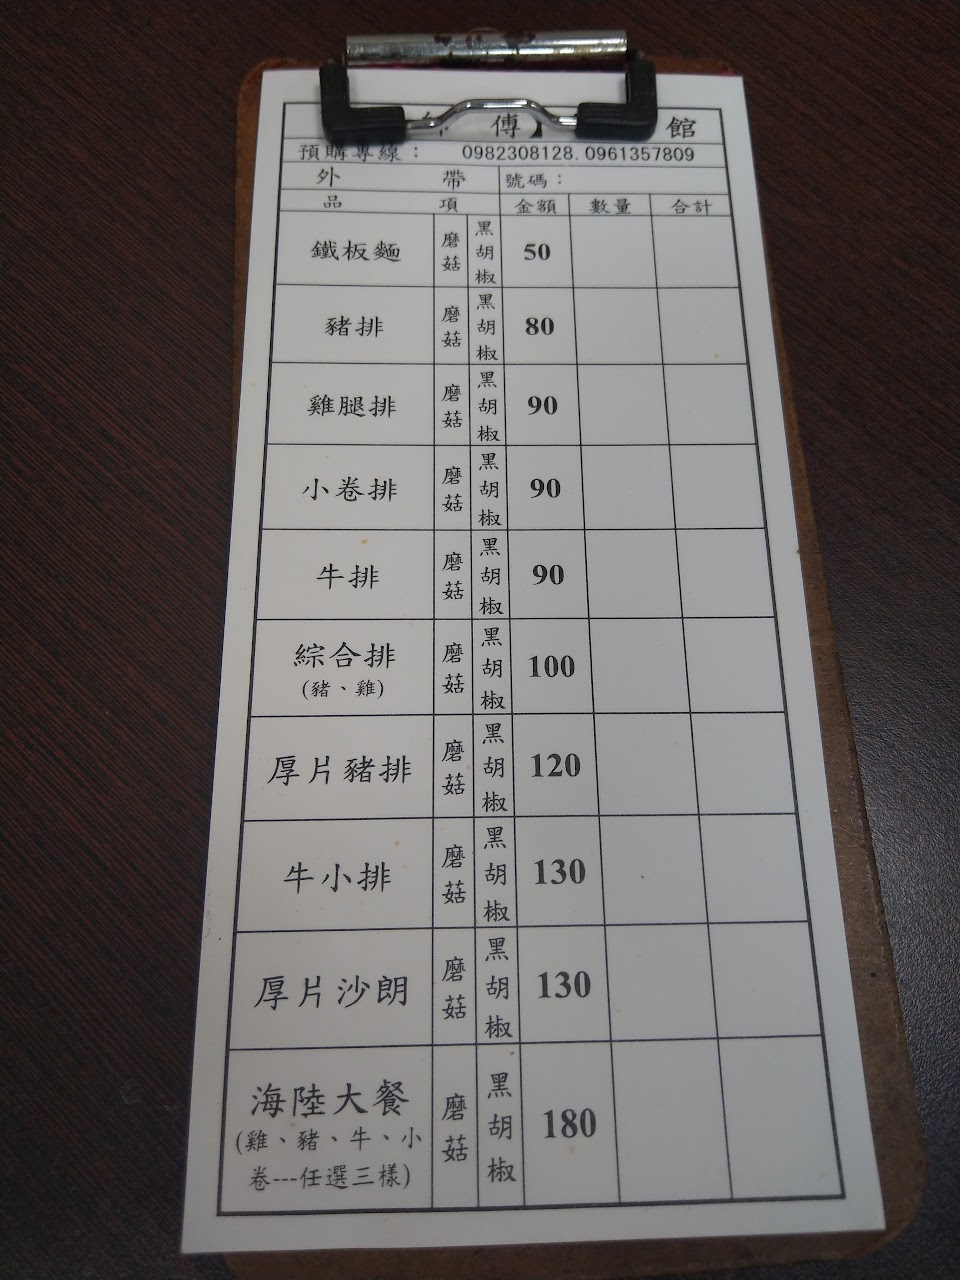 傅 館
預購專線： 0982308128.0961357809
外 帶 號碼：
品 項 金額 數量 合計
鐵板麵 磨菇 黑胡椒 50
豬排 磨菇 黑胡椒 80
雞腿排 磨菇 黑胡椒 90
小卷排 磨菇 黑胡椒 90
牛排 磨菇 黑胡椒 90
綜合排 磨菇 黑胡椒 100
(豬、雞)
厚片豬排 磨菇 黑胡椒 120
牛小排 磨菇 黑胡椒 130
厚片沙朗 磨菇 黑胡椒 130
海陸大餐 磨菇 黑胡椒 180
(雞、豬、牛、小
卷---任選三樣)